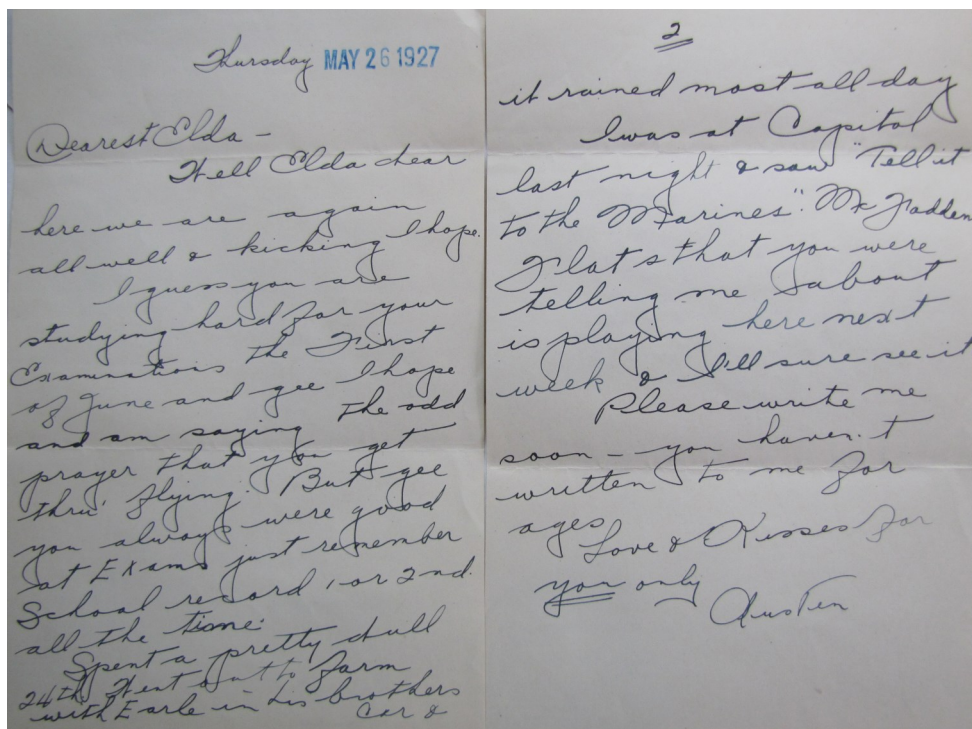 Thursday MAY 26 1927
Dearest Elda -
Well Elda dear
here we are again
all well & kicking I hope.
I guess you are
studying hard for your
Examinations the First
of June and gee I hope
and am saying the odd
prayer that you get
thru' flying. But gee
you always were good
at Exams just remember
School record 1 or 2nd.
all the time.
Spent a pretty dull
24th Went out to farm
with Earle in his brothers
car &
2
it rained most all day
I was at Capitol
last night & saw "Tell it
to the Marines". McFadden
Flats that you were
telling me about
is playing here next
week & I'll sure see it
Please write me
soon - you haven't
written to me for
ages
Love & Kisses for
you only
Austen